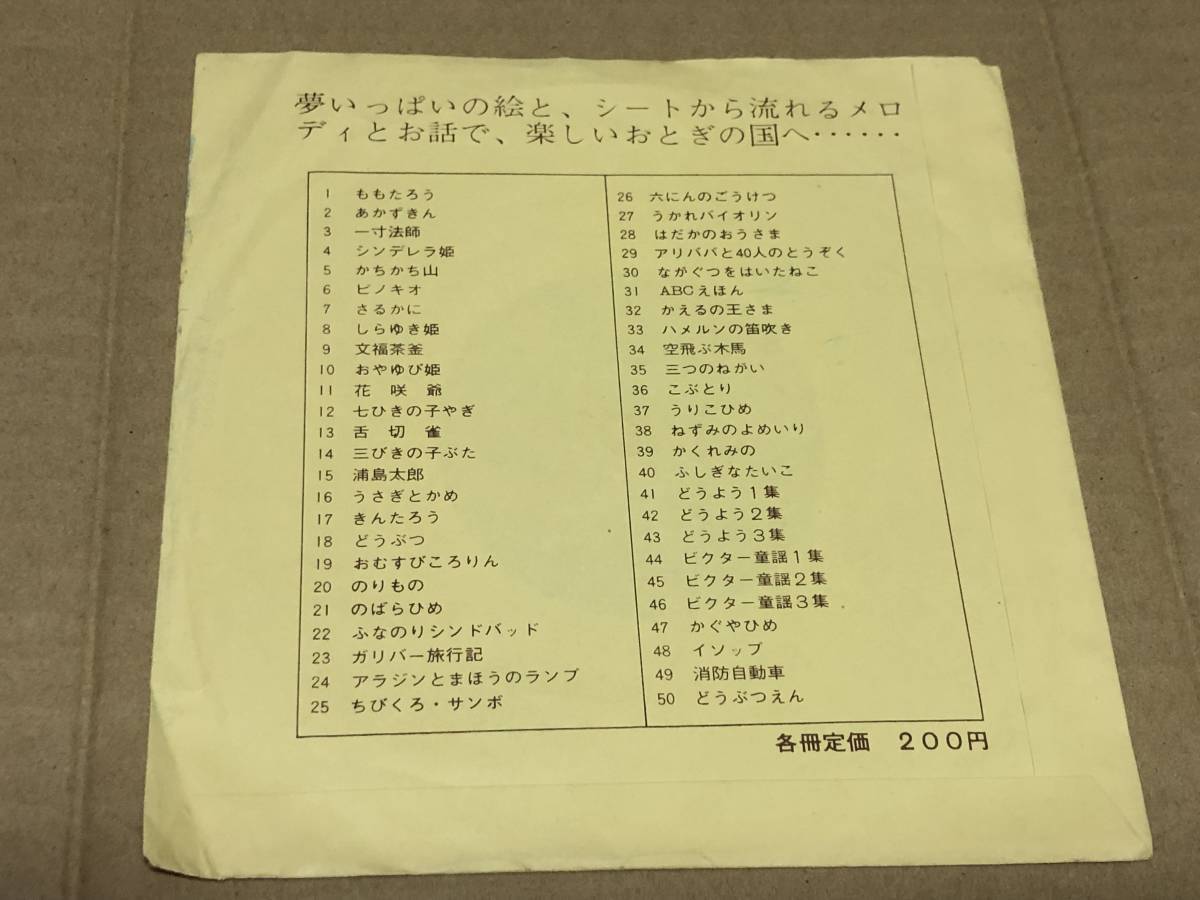 夢いっぱいの絵と、シートから流れるメロ
ディとお話で、楽しいおとぎの国へ‥‥‥
1 ももたろう
2 あかずきん
3 一寸法師
4 シンデレラ姫
5 かちかち山
6 ピノキオ
7 さるかに
8 しらゆき姫
9 文福茶釜
10 おやゆび姫
11 花咲爺
12 七ひきの子やぎ
13 舌切雀
14 三びきの子ぶた
15 浦島太郎
16 うさぎとかめ
17 きんたろう
18 どうぶつ
19 おむすびころりん
20 のりもの
21 のばらひめ
22 ふなのりシンドバッド
23 ガリバー旅行記
24 アラジンとまほうのランプ
25 ちびくろ・サンボ
26 六にんのごうけつ
27 うかれバイオリン
28 はだかのおうさま
29 アリババと40人のとうぞく
30 ながぐつをはいたねこ
31 ABCえほん
32 かえるの王さま
33 ハメルンの笛吹き
34 空飛ぶ木馬
35 三つのねがい
36 こぶとり
37 うりこひめ
38 ねずみのよめいり
39 かくれみの
40 ふしぎなたいこ
41 どうよう1集
42 どうよう2集
43 どうよう3集
44 ビクター童謡1集
45 ビクター童謡2集
46 ビクター童謡3集
47 かぐやひめ
48 イソップ
49 消防自動車
50 どうぶつえん
各冊定価 200円